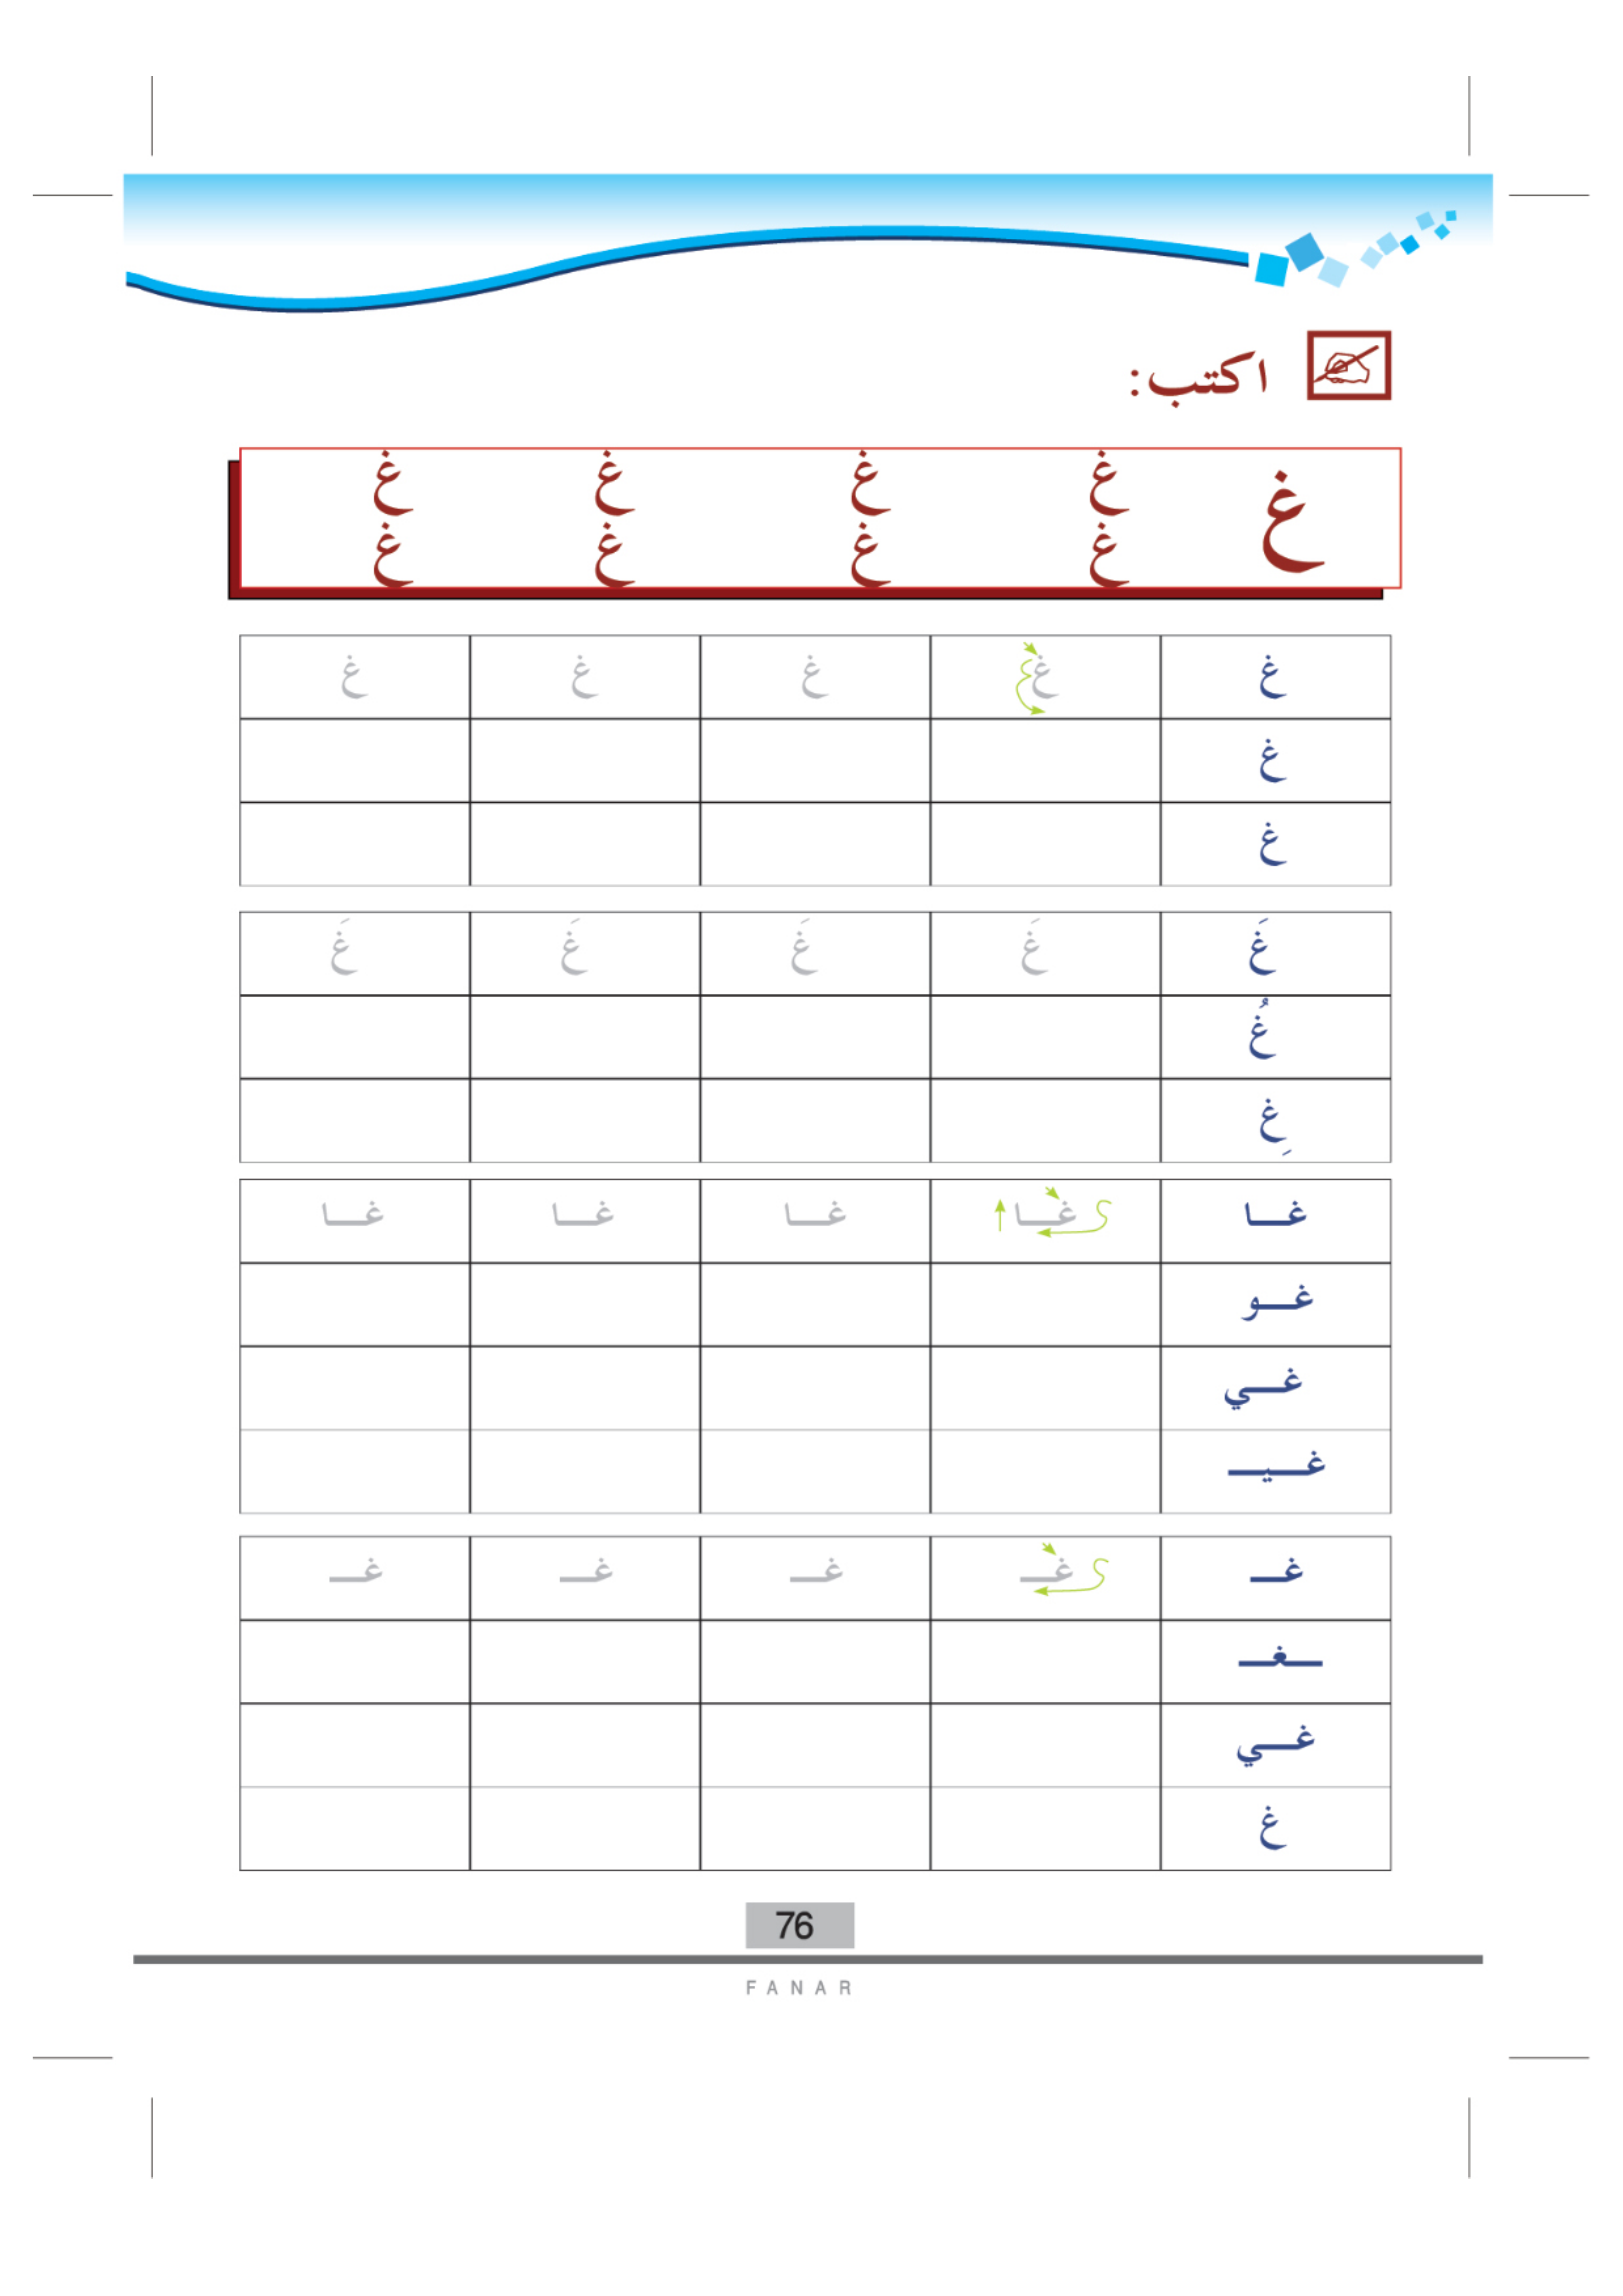 اكتب:
غ غ غ غ غ
غ غ غ غ
غ غ غ غ غ
غ
غ
غَ غَ غَ غَ غَ
غُ
غِ
غـا غـا غـا غـا غـا
غـو
غـي
غـيـ
غـ غـ غـ غـ غـ
ـغـ
غـي
غ
76
FANAR